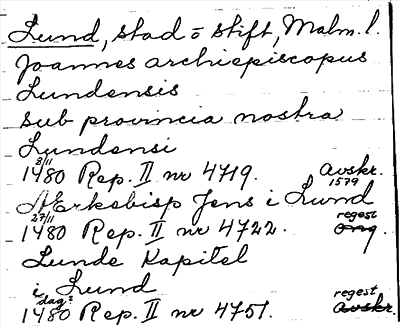 Lund, stad o stift, Malm. l.
Joannes archiepiscopus
Lundensis
sub provincia nostra
Lundensi
8/11
1480 Rep. II nr 4719. avskr. 1579
Ærkebisp Jens i Lund
27/11
1480 Rep. II nr 4722. regest orig.
Lunde Kapitel
i Lund
dag?
1480 Rep. II nr 4751. regest avskr.